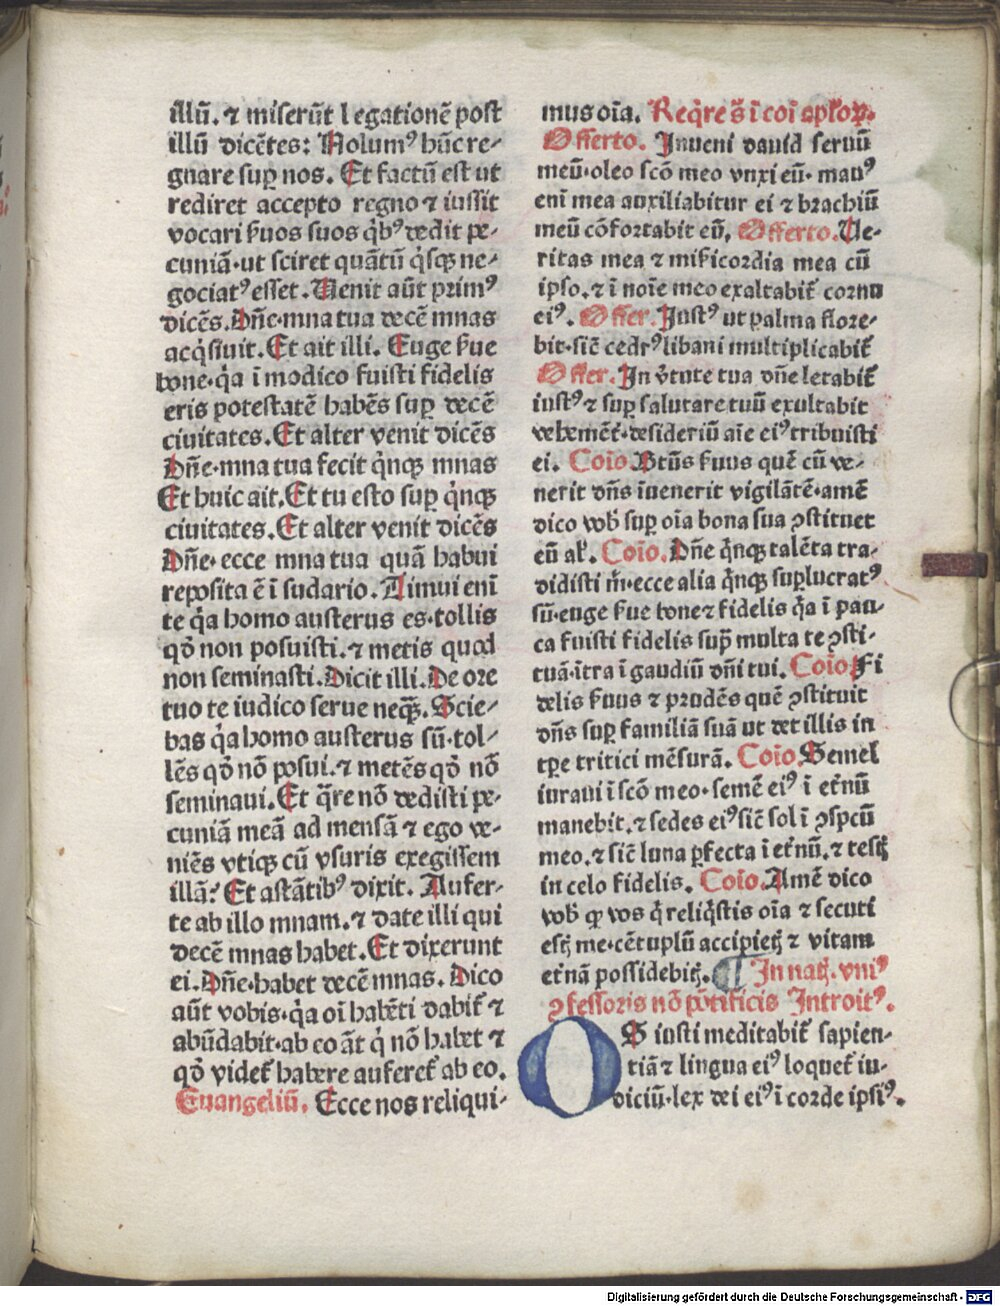 illū. ⁊ miserūt legationē post
illū dicētes: Nolumꝰ hūc re-
gnare suꝑ nos. Et factū est ut
rediret accepto regno ⁊ iussit
vocari ẜuos suos q̇bꝰ dedit pe-
cuniā·ut sciret quātū q̇sqꝫ ne-
gociatꝰ esset. Uenit aūt primꝰ
dicēs. Dn̄e·mna tua decē mnas
acq̇siuit. Et ait illi. Euge ẜue
bone·q̇a ī modico fuisti fidelis
eris potestatē habēs suꝑ decē
ciuitates. Et alter venit dicēs
Dn̄e·mna tua fecit q̇nqꝫ mnas
Et huic ait. Et tu esto suꝑ q̇nqꝫ
ciuitates. Et alter venit dicēs
Dn̄e·ecce mna tua quā habui
reposita ē ī sudario. Timui enī
te q̇a homo austerus es·tollis
qđ non posuisti.⁊ metis quod
non seminasti. Dicit illi. De ore
tuo te iudico serue neqꝫ. Scie-
bas q̇a homo austerus sū·tol-
lēs qđ nō posui.⁊ metēs qđ nō
seminaui. Et q̄re nō dedisti pe-
cuniā meā ad mensā ⁊ ego ve-
niēs vtiqꝫ cū vsuris exegissem
illā? Et astātibꝰ dixit. Aufer-
te ab illo mnam.⁊ date illi qui
decē mnas habet. Et dixerunt
ei. Dn̄e·habet decē mnas. Dico
aūt vobis·q̇a oī habēti dabit᷑ ⁊
abūdabit·ab eo āt q̇ nō habet ⁊
qđ videt᷑ habere auferet᷑ ab eo.
Euangeliū. Ecce nos reliqui-
mus oīa. Req̇re s̄ ī coī apl'oꝝ.
Offerto. Inueni dauid seruū
meū·oleo scō meo vnxi eū· manꝰ
enī mea auxiliabitur ei ⁊ brachiū
meū cōfortabit eū. Offerto. Ue-
ritas mea ⁊ mīẜicordia mea cū
ipso.⁊ ī noīe meo exaltabit᷑ cornu
eiꝰ. Offer. Iustꝰ ut palma flore-
bit·sic̄ cedrꝰ libani multiplicabit᷑
Offer. In v̇tute tua dn̄e letabit᷑
iustꝰ ⁊ suꝑ salutare tuū exultabit
vehemēt᷑·desideriū aīe eiꝰ tribuisti
ei. Coīo. Btūs ẜuus quē cū ve-
nerit dn̄s īuenerit vigilātē·amē
dico vob̄ suꝑ oīa bona sua ꝯstituet
eū al'. Coīo. Dn̄e q̇nqꝫ talēta tra-
didisti m̄·ecce alia q̇nqꝫ suꝑlucratꝰ
sū·euge ẜue bone ⁊ fidelis q̇a ī pau-
ca fuisti fidelis suꝑ multa te ꝯsti-
tuā·ītra ī gaudiū dn̄i tui. Coīo. Fi
delis ẜuus ⁊ prudēs quē ꝯstituit
dn̄s suꝑ familiā suā ut det illis in
tꝑe tritici mēsurā. Coīo. Semel
iuraui ī scō meo·semē eiꝰ ī et᷑nū
manebit.⁊ sedes eiꝰ sic̄ sol ī ꝯspcū
meo.⁊ sic̄ luna ꝑfecta ī et᷑nū.⁊ testꝭ
in celo fidelis. Coīo. Amē dico
vob̄ ꝙ vos q̇ reliq̇stis oīa ⁊ secuti
estꝭ me·cētuplū accipietꝭ ⁊ vitam
et᷑nā possidebitꝭ. ¶ In natꝭ. vniꝰ
ꝯfessoris nō pōtificis Introitꝰ.
OS iusti meditabit᷑ sapien-
tiā ⁊ lingua eiꝰ loquet᷑ iu-
diciū·lex dei eiꝰ ī corde ipsiꝰ.
Digitalisierung gefördert durch die Deutsche Forschungsgemeinschaft - DFG